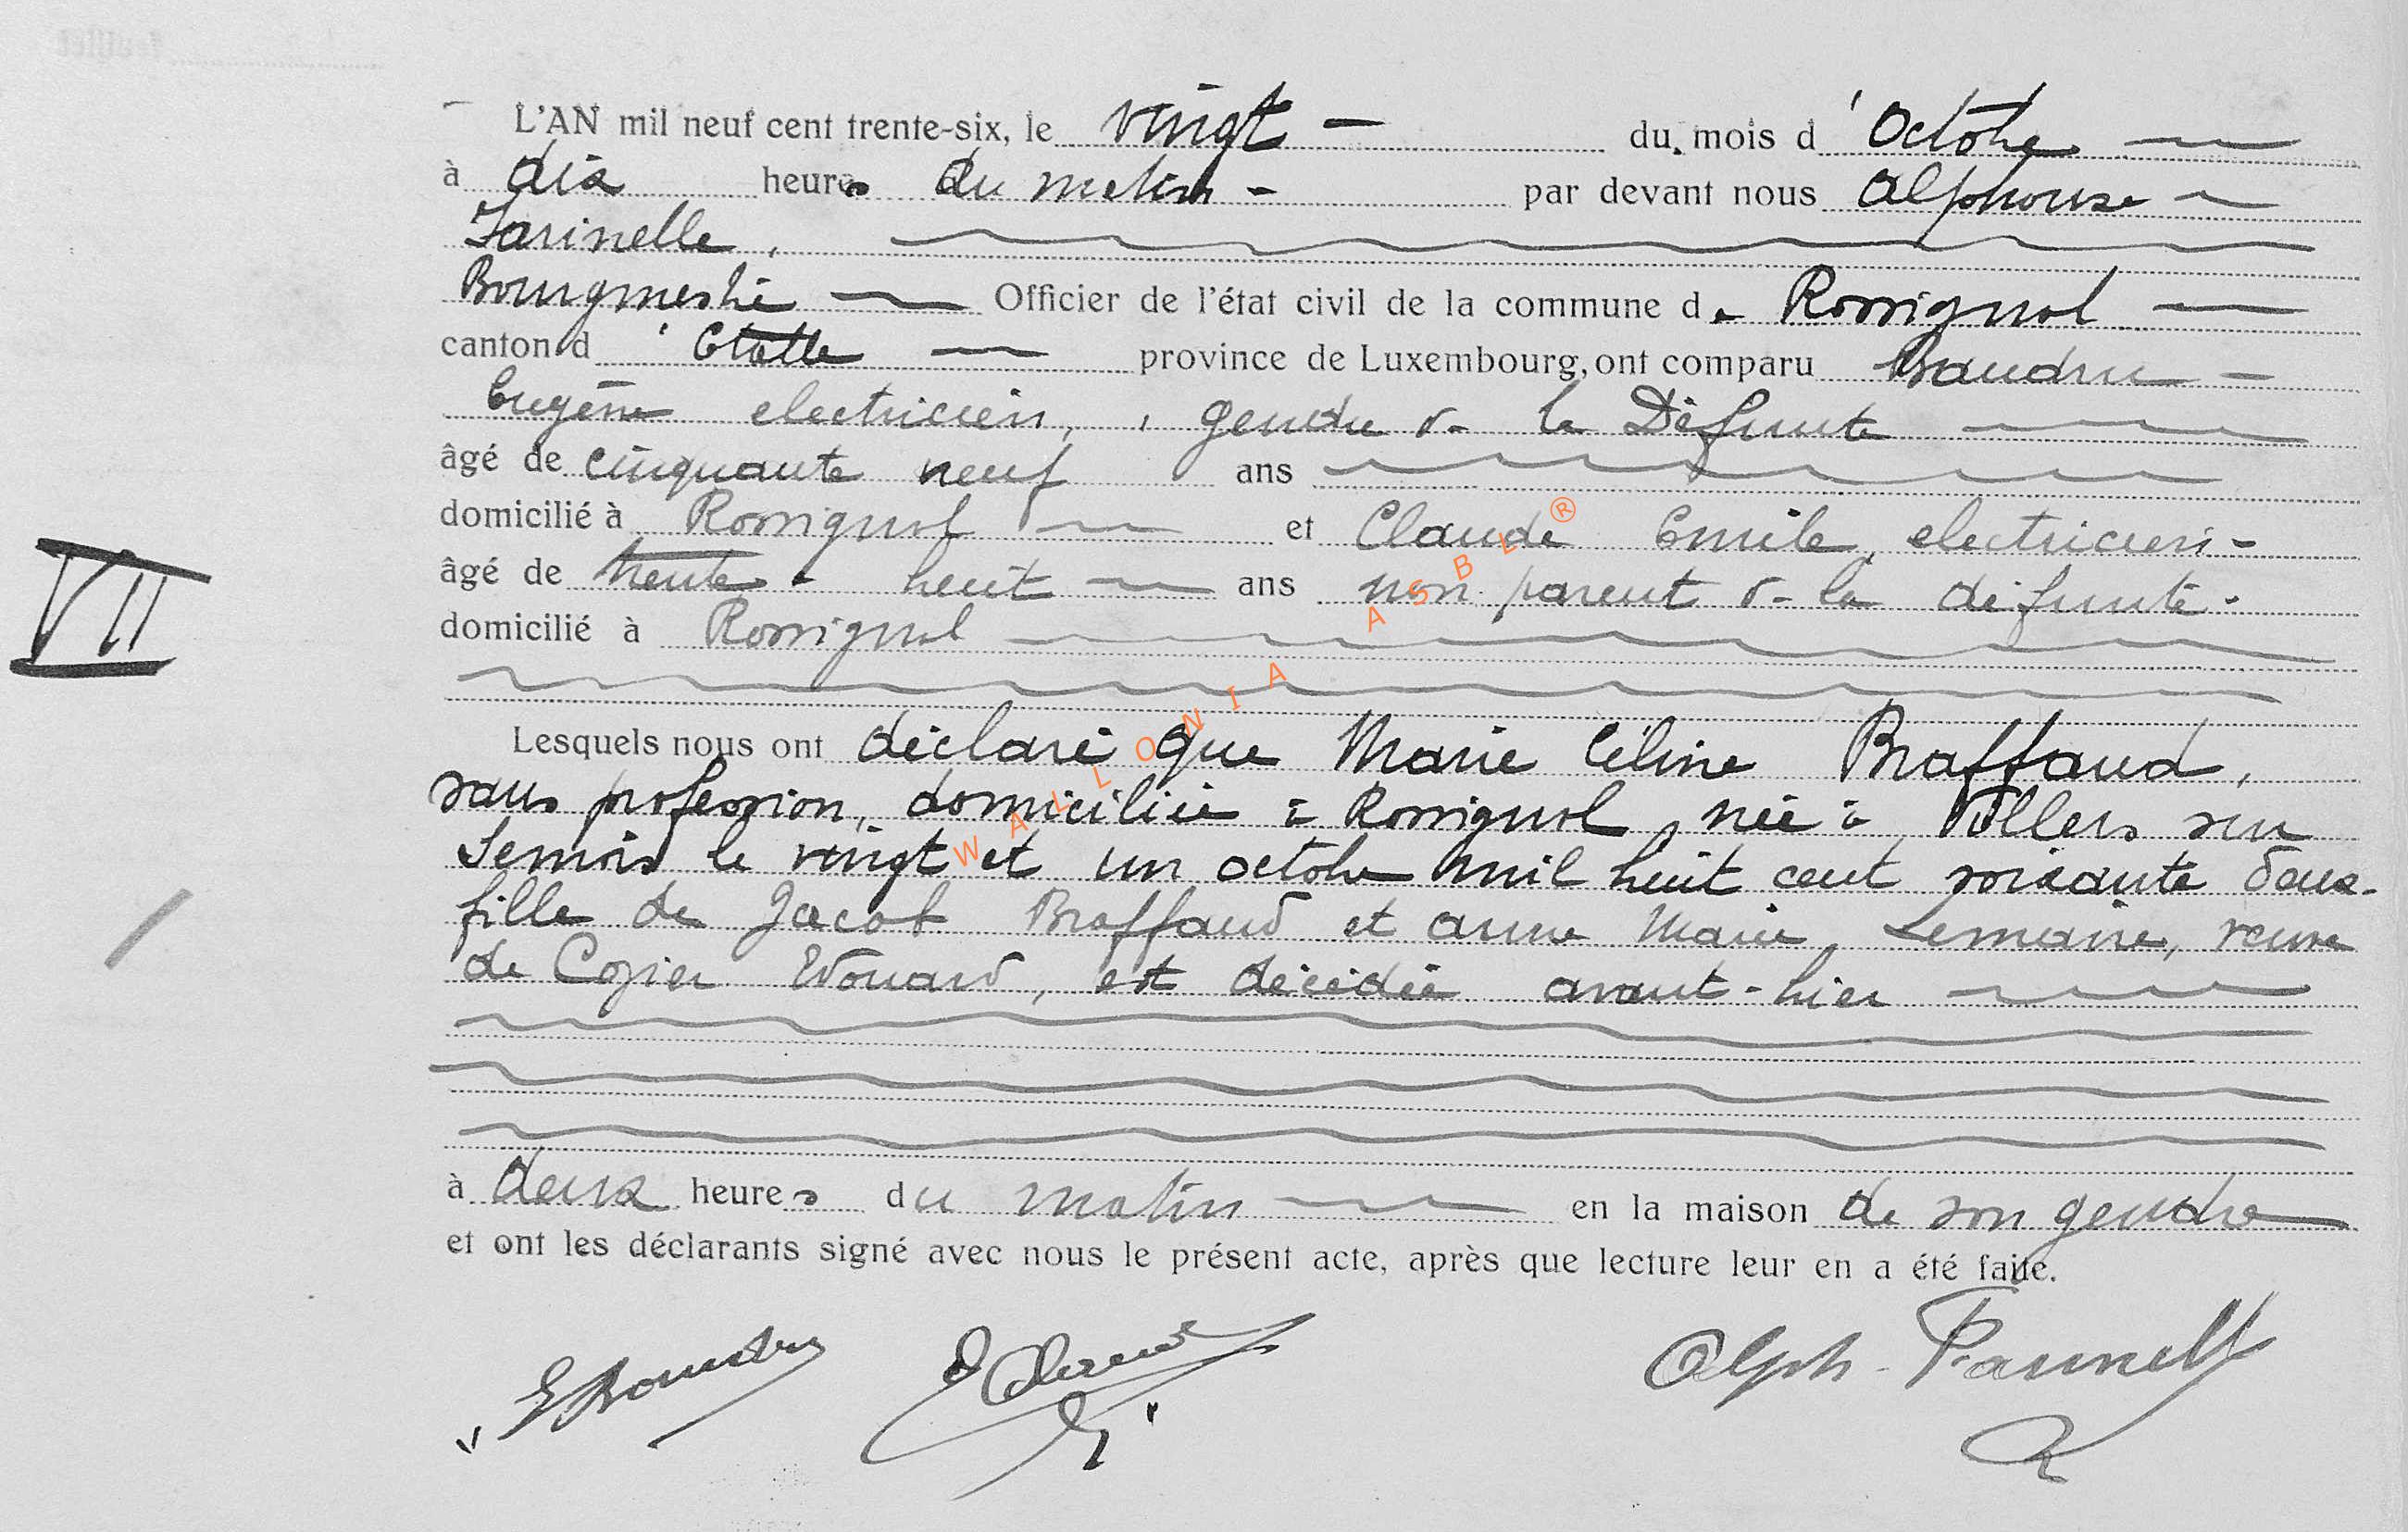 L'AN mil neuf cent trente-six, le vingt — du mois d'Octobre
à dix heures du matin - par devant nous Alphonse
Farinelle,
Bourgmestre — Officier de l'état civil de la commune de Rossignol
canton d'Etalle — province de Luxembourg, ont comparu Baudru -
Eugène electricien, gendre de la Défunte
âgé de cinquante neuf ans
domicilié à Rossignol et Claude Emile, electricien -
âgé de trente - huit ans non parent de la défunte.
domicilié à Rossignol
Lesquels nous ont déclaré que Marie Céline Braffaud,
sans profession, domiciliée à Rossignol née à Villers sur
Semois le vingt et un octobre mil huit cent soixante deux -
fille de Jacob Braffaud et Anne Marie Lemaire, veuve
de Cozier Edouard, est décédée avant-hier
à deux heures du matin en la maison de son gendre
et ont les déclarants signé avec nous le présent acte, après que lecture leur en a été faite.
EBaudru E Claude Alph. Farinelle
VII
WALLONIA ASBL ®